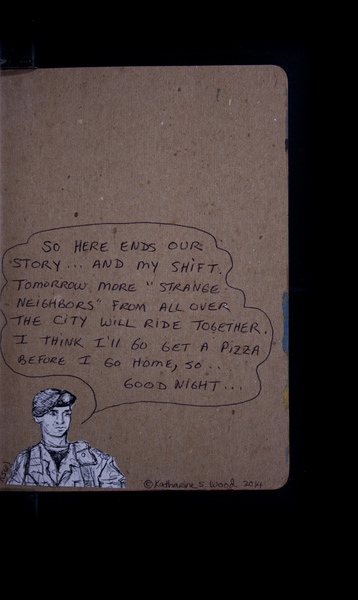 SO HERE ENDS OUR
STORY... AND MY SHIFT.
TOMORROW MORE "STRANGE
NEIGHBORS" FROM ALL OVER
THE CITY WILL RIDE TOGETHER.
I THINK I'LL GO GET A PIZZA
BEFORE I GO HOME, SO..
GOOD NIGHT...
© Katharine S. Wood 2014